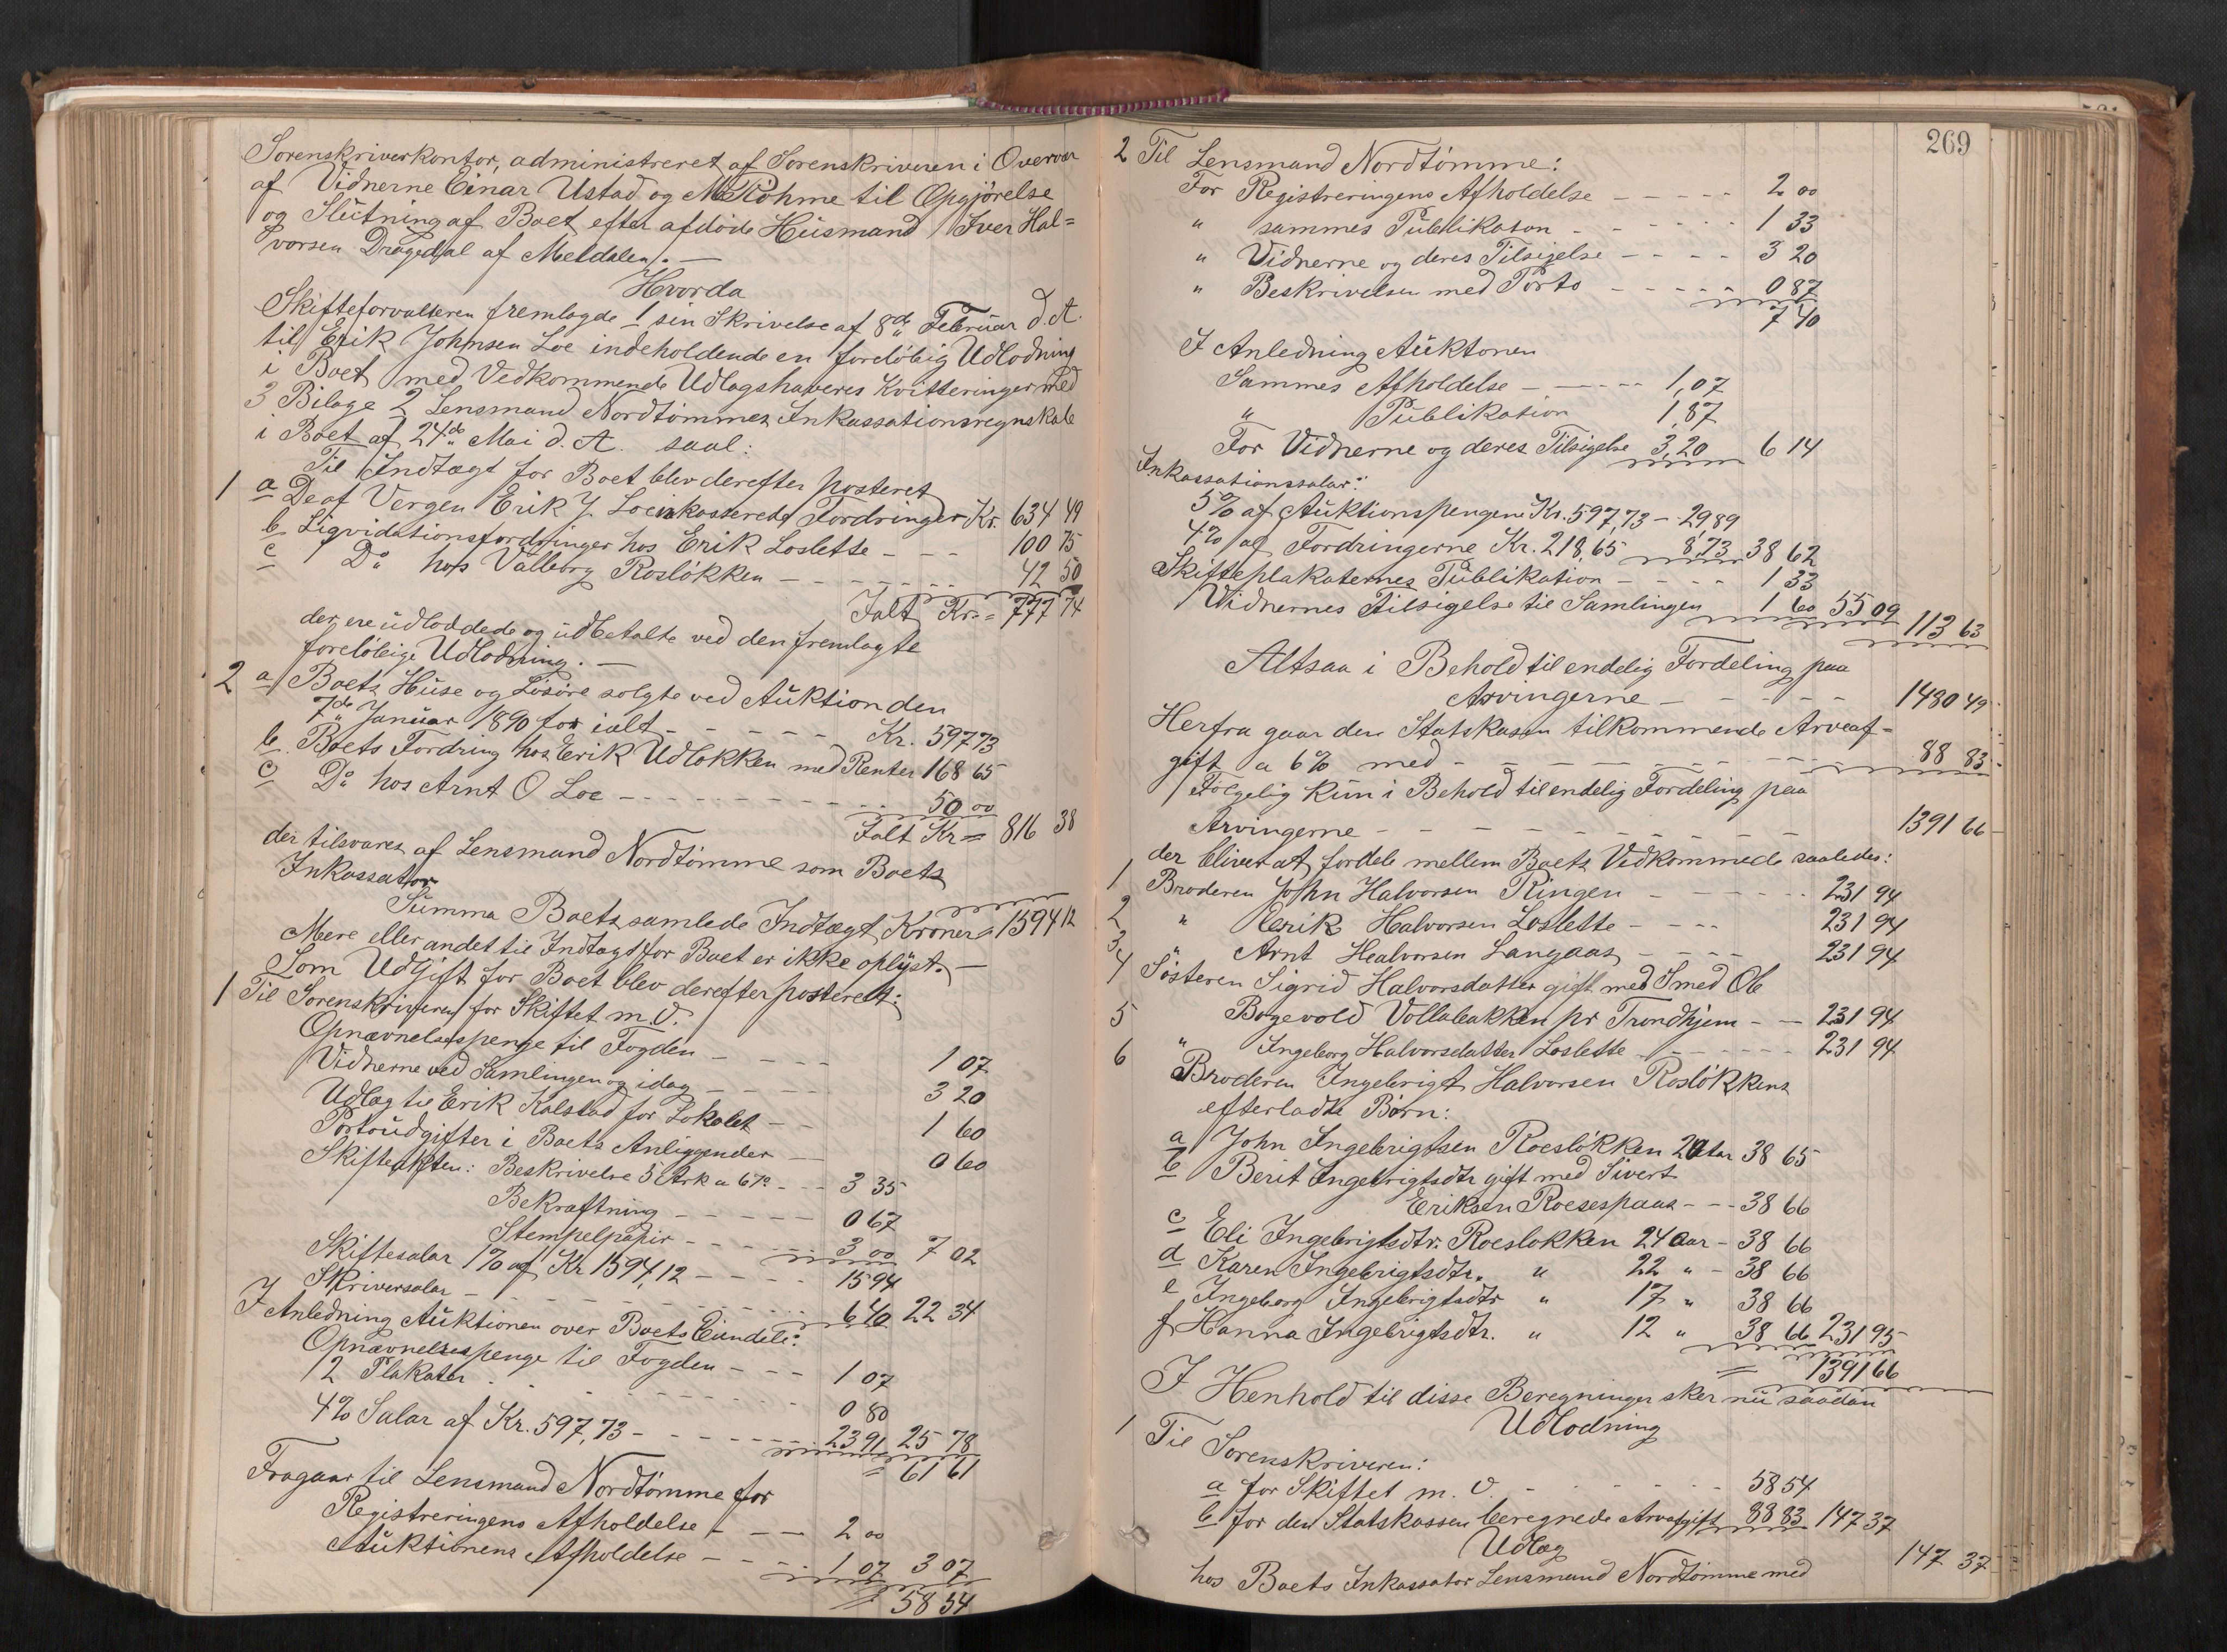 Sorenskriverkontor, administreret af Sorenskriveren i Overvær
af Vidnerne Einar Ustad og M Röhme til Opgjörelse
og Slutning af Boet efter afdöde Husmand Iver Hal=
vorsen Dragedal af Meldalen. —
Hvorda
Skifteforvalteren fremlagde 1 sin Skrivelse af 8de Februar d. A.
til Erik Johnsen Loe indeholdende en forelöbig Udlodning
i Boet med Vedkommende Udlagshaveres Kvitteringer med
3 Bilage 2 Lensmand Nordtömmes Inkassationsregnskab
i Boet af 24de Mai d. A. saal:
Til Indtægt for Boet blev derefter posteret
1 a De af Vergen Erik J. Loe inkasserede Fordringer Kr. 634 49
b Liqvidationsfordringer hos Erik Loslette - - - 100 75
c Do hos Valborg Roslökken - - - - - - - 42 50
Ialt Kr. = 777 74
der ere udloddede og udbetalte ved den fremlagte
forelöbige Udlodning. —
2 a Boets Huse og Lösöre solgte ved Auktion den
7de Januar 1890 for ialt - - - - - Kr. 597 73
b. Boets Fordring hos Erik Udlökken med Renter 168 65
c Do hos Arnt O Loe - - - - - - - - - 50 00
Ialt Kr = 816 38
der tilsvares af Lensmand Nordtömme som Boets
Inkassator
Summa Boets samlede Indtægt Kroner = 1594 12
Mere eller andet til Indtægt for Boet er ikke oplyst. —
Som Udgift for Boet blev derefter posteret:
1 Til Sorenskriveren for Skiftet m. v.
Opnævnelsespenge til Fogden - - - - 1 07
Vidnerne ved Samlingen og idag - - - - 3 20
Udlæg til Erik Kalstad for Lokalet - - 1 60
Portoudgifter i Boets Anliggender — 0 60
Skifteakten: Beskrivelse 5 Ark a 67o - - 3 35
Bekræftning - - - - - 0 67
Stempelpapir - - - - - 3 00 7 02
Skiftesalar 1% af Kr 1594,12 - - - - 15 94
Skriversalar - - - - - - - - - 6 40 22 34
I Anledning Auktionen over Boets Eiendele:
Opnævnelsespenge til Fogden - - - 1 07
12 Plakater - - - - - - - 0 80
4% Salar af Kr. 597,73 - - - - - - 23 91 25 78
= 61 61
Fragaar til Lensmand Nordtömme for
Registreringens Afholdelse - - — 2 00
Auktionens Afholdelse - - - 1 07 3 07
= 58 54
269
2 Til Lensmand Nordtömme:
For Registreringens Afholdelse - - - - - 2 00
" sammes Publikation - - - - - 1 33
" Vidnerne og deres Tilsigelse - - - - 3 20
" Beskrivelsen med Porto - - - - - 0 87
7 40
I Anledning Auktonen
Sammes Afholdelse - — - - - 1,07
" Publikation 1,87
For Vidnerne og deres Tilsigelse 3,20 6 14
Inkassationssalar:
5% af Auktionspengene Kr. 597,73 - 29,89
4% af Fordringerne Kr. 218,65 8,73 38 62
Skifteplakaternes Publikation - - - - 1 33
Vidnernes Tilsigelse til Samlingen 1 60 55 09 113 63
Altsaa i Behold til endelig Fordeling paa
Arvingerne - - - - - - 1480 49
Herfra gaar den Statskassen tilkommende Arveaf-
gift a 6% med - - - - - - - - - 88 83
Fölgelig kun i Behold til endelig Fordeling paa
Arvingerne - - - - - - - - - - 1391 66
der bliver at fordele mellem Boets Vedkommede saaledes:
1 Broderen John Halvorsen Ringen - - - - - - 231 94
2 " Eerik Halvorsen Loslette - - - - 231 94
3 " Arnt Healvorsen Langaas - - - - 231 94
4 Sösteren Sigrid Halvorsdatter gift med Smed Ole
Bogevold Vollabakken pr Trondhjem - — 231 94
5 " Ingeborg Halvorsdatter Loslette - - - - - 231 94
6 Broderen Ingebrigt Halvorsen Roslökkens
efterladte Börn:
a John Ingebrigtsen Roeslökken 20 Aar 38 65
b Berit Ingebrigtsdtr gift med Sivert
Eriksen Roesespaas - - - 38 66
c Eli Ingebrigtsdtr. Roeslokken 24 Aar - 38 66
d Karen Ingebrigtsdtr. " 22 " - 38 66
e Ingeborg Ingebrigtsdtr " 17 " 38 66
f Hanna Ingebrigtsdtr. " 12 " 38 66 231 95
= 1391 66
I Henhold til disse Beregninger sker nu saadan
Udlodning
1 Til Sorenskriveren:
a for Skiftet m. v. - - - - - - - 58 54
b for den Statskassen beregnede Arveafgift 88 83 147 37
Udlæg
hos Boets Inkassator Lensmand Nordtömme med 147 37